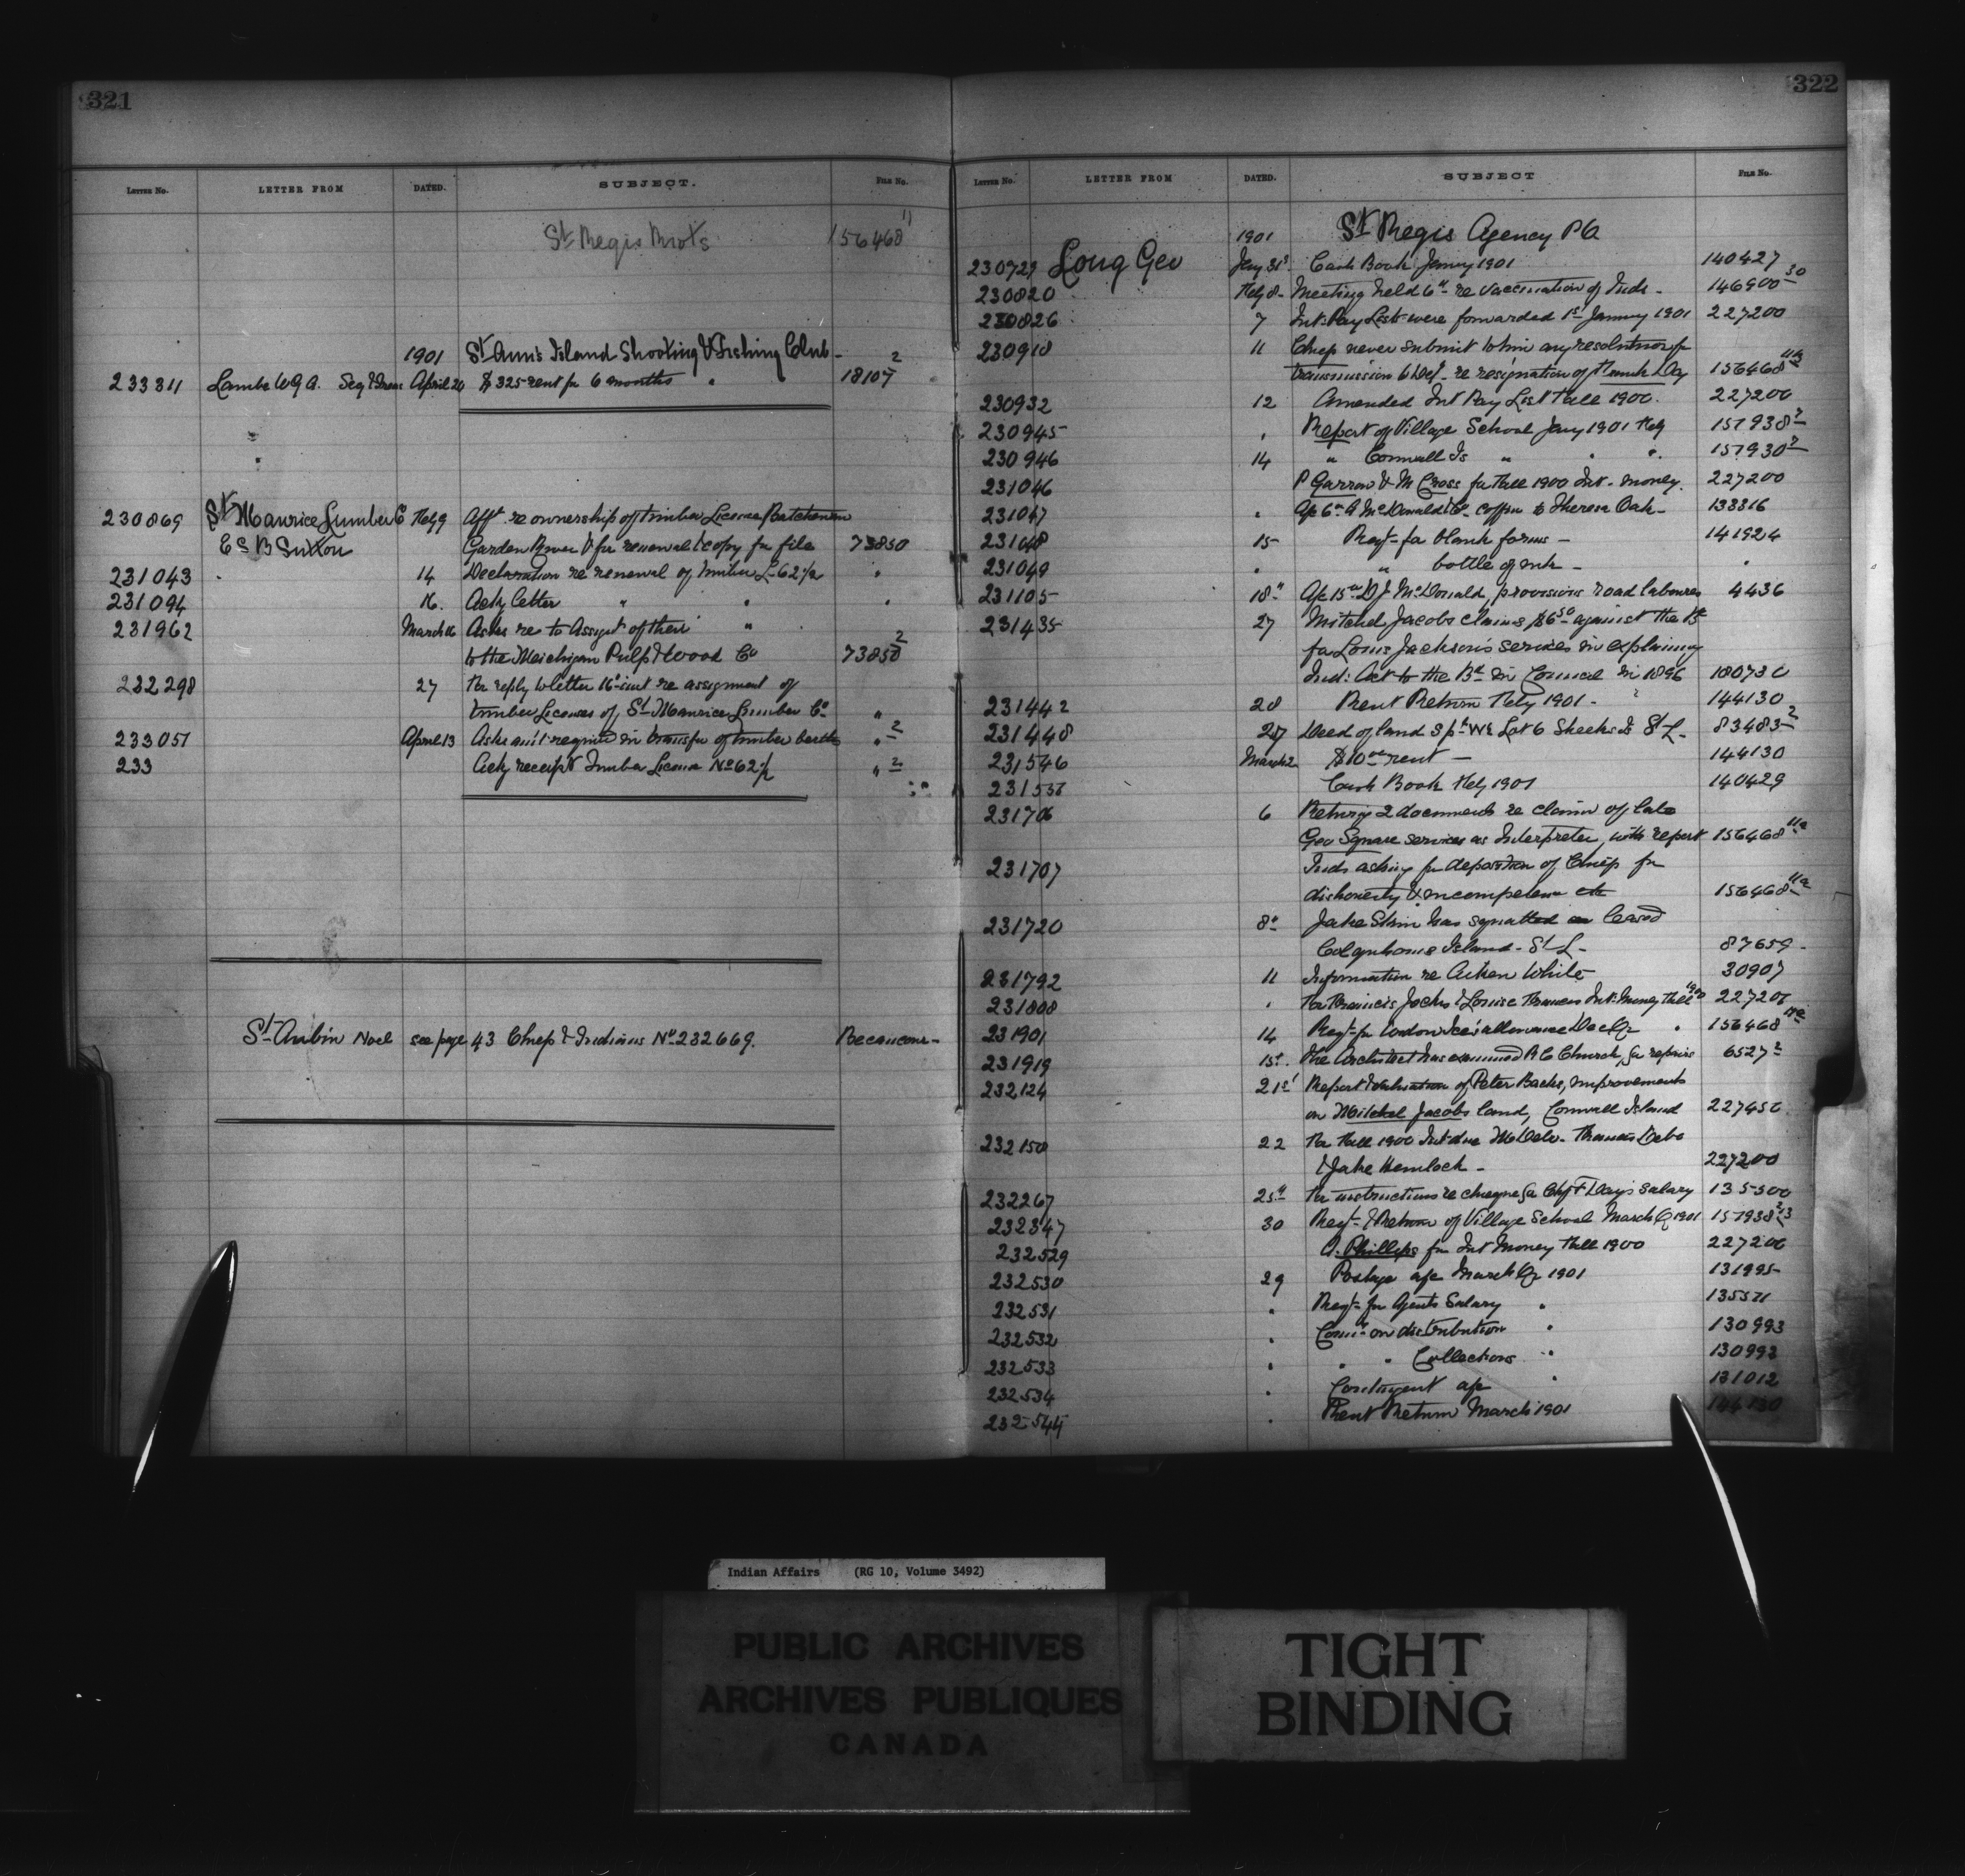 321
LETTER No. LETTER FROM DATED. SUBJECT. FILE No.
St Regis 156468 11
1901 St Ann's Island Shooting & Fishing Club - 2
233311 Lambe W G A. Secy & Treas April 20 $325 rent for 6 months " 18107
230869 St Maurice Lumber Co Feby 9 Afft re ownership of timber License Batchewana
E S B Sutton Garden River & for renewal & copy for file 73850
231043 14 Declaration re renewal of timber L- 62 1/2 "
231094 16. Ackg letter " " "
231962 March 16 Asks re to Assgnt of their " 2
to the Michigan Pulp & Wood Co 73850
232298 27 For reply to letter 16th inst re assignment of
timber Licenses of St Maurice Lumber Co "
233051 April 13 Asks am't required in transfer of timber berths " 2
233 Ackg receipt Timber License No 62 1/2 " 2
St Aubin Noel see page 43 Chiefs & Indians No 232669. Becancour-
322
LETTER No. LETTER FROM DATED. SUBJECT FILE No.
1901 St Regis Agency PQ
230729 Long Geo Jany 31st Cash Book Janury 1901 140427
230820 Feby 8- Meeting held 6th re vaccination of Inds - 146900 30
230826 7 Int. Pay Lists were forwarded 1st January 1901 227200
230918 11 Chiefs never submit to him any resolutions for
transmission to Dept- re resignation of Frank Day 156468 11a
230932 12 Amended Int Pay List Fall 1900. 227200
230945 " Report of Village School Jany 1901 Feby 157938 2
230946 14 " Cornwall Is " " " 157930 2
231046 P Garrow & M Cross for Fall 1900 Int. money. 227200
231047 " A/c 6th A McDonald & Co. coffin to Theresa Oak - 133316
231048 15 Reqt- for blank forms - 141924
231049 " " bottle of ink - "
231105 18th A/c 15th D J McDonald, provisions road labourers 4436
231435 27 Mitchel Jacobs claims $6 50 against the Bd
for Louis Jackson's services in explaining
Ind: Act to the Bd in Council in 1896 180730
231442 28 Rent Return Feby 1901 - 144130
231448 27 Deed of land S pt W 1/2 Lot 6 Sheeks Is St L- 83483 2
231546 March 2 $10 00 rent - 144130
231556 Cash Book Feby 1901 140429
231706 6 Returng 2 documents re claim of late
Geo Square services as Interpreter, with report 156468 11a
231707 Inds asking for deposition of Chiefs for
dishonesty & incompetence etc 156468 11a
231720 8th Jake Skin has squatted on leased
Colquhouns Island - St L- 87659 -
231792 11 Information re Aiken White 30907
231808 " For Francis Jocks & Louise Francis Int. Money Fall 1900 227200
231901 14 Reqt- for London Ice's allowance Dec Qr " 156468 11a
231919 15th. The Architect has examined R C Church, for repairs 6527 2
232124 21st Report & valuation of Peter Backs, improvements
on Mitchel Jacobs land, Cornwall Island 227450
232150 22 For Fall 1900 Int. due
& Jake Hemlock - 227200
232267 25th For instructions re cheque for Chf F Day's salary 135300
232347 30 Reqt- & Return of Village School March Qr 1901 157938 2/3
232529 A. Phillips for Int Money Fall 1900 227200
232530 29 Postage a/c March Qr 1901 131995
232531 " Reqt- for Agents Salary " 135571
232532 " Comn on distribution " 130993
232533 " " " Collections " 130993
232534 " Contingent a/c " 131012
232544 " Rent Return March 1901 144130
Indian Affairs (RG 10, Volume 3492)
PUBLIC ARCHIVES
ARCHIVES PUBLIQUES
CANADA
TIGHT
BINDING